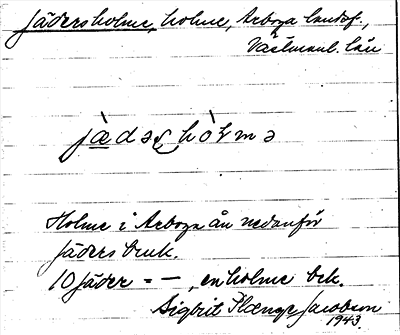 Jädersholme, holme, Arboga landsf.,
Västmanl. län
Holme i Arboga ån nedanför
Jäders bruk.
10 Jäder - —, en holme bek.
Sigbrit Plænge Jacobson
1943.